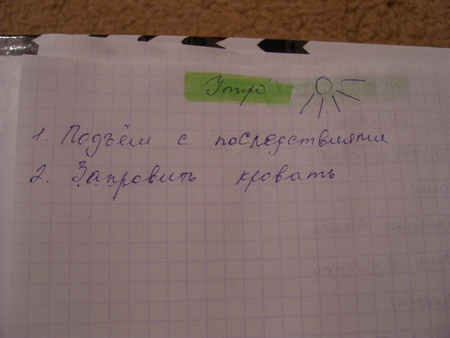 Утро
1. Подъём с последствиями
2. Заправить кровать